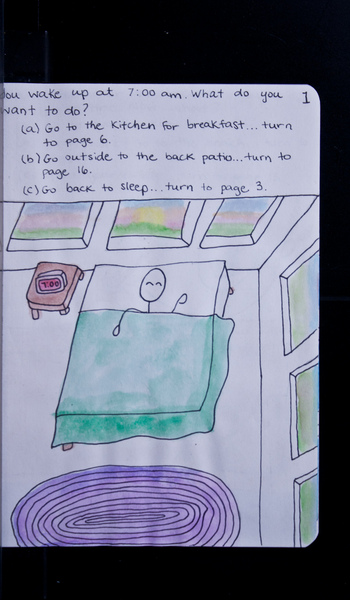 You wake up at 7:00 am. What do you
want to do?
1
(a) Go to the kitchen for breakfast... turn
to page 6.
(b) Go outside to the back patio... turn to
page 16.
(c) Go back to sleep... turn to page 3.
7:00